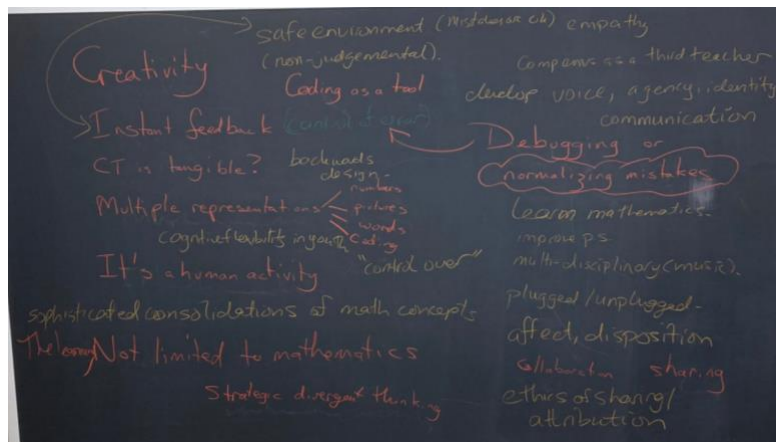 safe environment (mistakes are ok) empathy
(non-judgemental).
Creativity
Coding as a tool
Instant feedback (control of error)
CT is tangible?
backwards
design
Multiple representations
numbers
pictures
words
coding
cognitive flexibility in
It's a human activity
"control over"
sophisticated consolidations of math concepts
The learning Not limited to mathematics
Strategic divergent thinking
as a third teacher
develop voice, agency, identity
communication
Debugging or
normalizing mistakes
Learn mathematics
improve ps
multi-disciplinary (music).
plugged/unplugged
affect, disposition
collaboration sharing
ethics of sharing/
attribution